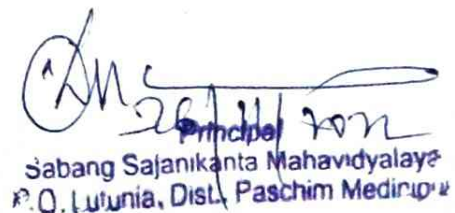 26/11/2022
Principal
Sabang Sajanikanta Mahavidyalaya
P.O. Lutunia, Dist. Paschim Medinipur